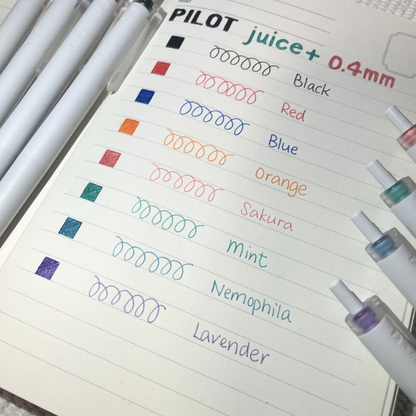 PILOT juice+ 0.4mm
Black
Red
Blue
Orange
Sakura
Mint
Nemophila
Lavender